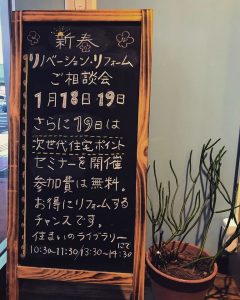 新春
リノベーション・リフォーム
ご相談会
1月18日19日
さらに19日は
次世代住宅ポイント
セミナーを開催
参加費は無料。
お得にリフォームする
チャンスです。
住まいのライブラリーにて
10:30~11:30/13:30~14:30